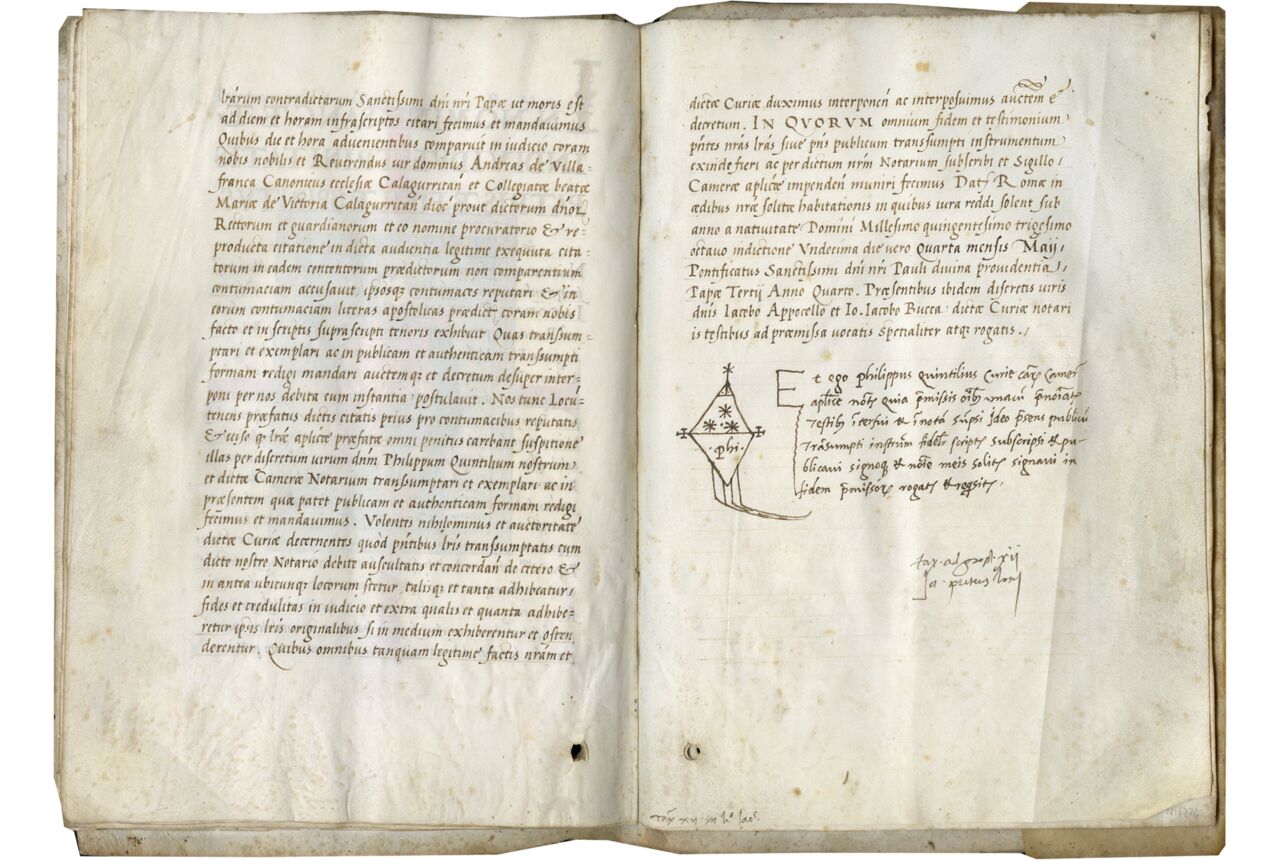 brarum contradictarum Sanctissimi dni nri Papæ ut moris est
ad diem et horam infrascriptos citari fecimus et mandavimus
Quibus die et hora advenientibus comparuit in iudicio coram
nobis nobilis et Reverendus vir dominus Andreas de Villa-
franca Canonicus ecclesiæ Calagurritan et Collegiatæ beatæ
Mariæ de Victoria Calagurritan dioc prout dictorum dnor
Rectorum et guardianorum et eo nomine procuratorio & re-
producta citatione in dicta audientia legitime exequuta cita-
torum in eadem contentorum prædictorum non comparentium
contumaciam accusavit, ipsosq; contumaces reputari & in
eorum contumaciam literas apostolicas prædict coram nobis
facto et in scriptis suprascripti tenoris exhibuit Quas transsum-
ptari et exemplari ac in publicam et authenticam transsumpti
formam redigi mandari auctemq; et decretum desuper inter-
poni per nos debita cum instantia postulavit. Nos tunc Locu-
tenens præfatus dictis citatis prius pro contumacibus reputatis
& viso q; lræ aplicæ præfatæ omni penitus carebant suspitione
illas per discretum virum dnm Philippum Quintilium nostrum
et dictæ Cameræ Notarium transumptari et exemplari ac in
præsentem quæ patet publicam et authenticam formam redigi
fecimus et mandavimus. Volentes nihilominus et auctoritate
dictæ Curiæ decernentes quòd pntibus lris transumptatis cum
dicto nostro Notario debite auscultatis et concordan de cetero &
in antea ubicunq; locorum stetur, talisq; et tanta adhibeatur,
fides et credulitas in iudicio et extra qualis et quanta adhibe-
retur ipsis lris originalibus si in medium exhiberentur et osten
derentur. Quibus omnibus tanquam legitime factis nram et
dictæ Curiæ duximus interponen ac interposuimus auctem e
decretum. IN QVORVM omnium fidem et testimonium
pntes nras lras sive pns publicum transumpti instrumentum
exinde fieri ac per dictum nrm Notarium subscribi et Sigillo,
Cameræ aplicæ impenden muniri fecimus Dat Romæ in
ædibus nræ solitæ habitationis in quibus iura reddi solent sub
anno a nativitate Domini Millesimo quingentesimo trigesimo
octavo indictione Vndecima die vero Quarta mensis Maij,
Pontificatus Sanctissimi dni nri Pauli divina providentia,
Papæ Tertij Anno Quarto. Præsentibus ibidem discretis viris
dnis Iacobo Appocello et Io. Iacobo Bucca dictæ Curiæ notari
is testibus ad præmissa vocatis specialiter atq; rogatis.,
Phi.
Et ego philippus Quintilius Curie Camer
aplice not quia pmissis oibus
testib interfui Ideo psens publicu
transumpti fidel script subscripsi & pu-
blicavi signoq; & noie meis solitis signavi in
fidem pmissor rogat & requisit.
tax. ad gross. xii